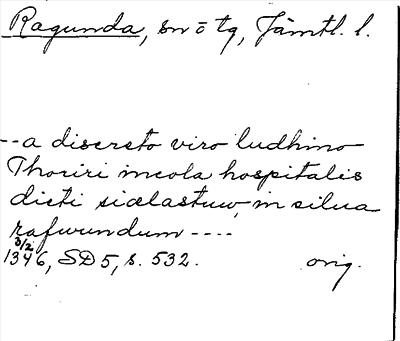 Ragunda, sn ō tg, Jämtl. l.
--a discreto viro ludhino
Thoriri incola hospitalis
dicti siælastuw, in silua
rafwundum ----
3/2
1346, SD 5, s. 532. orig.